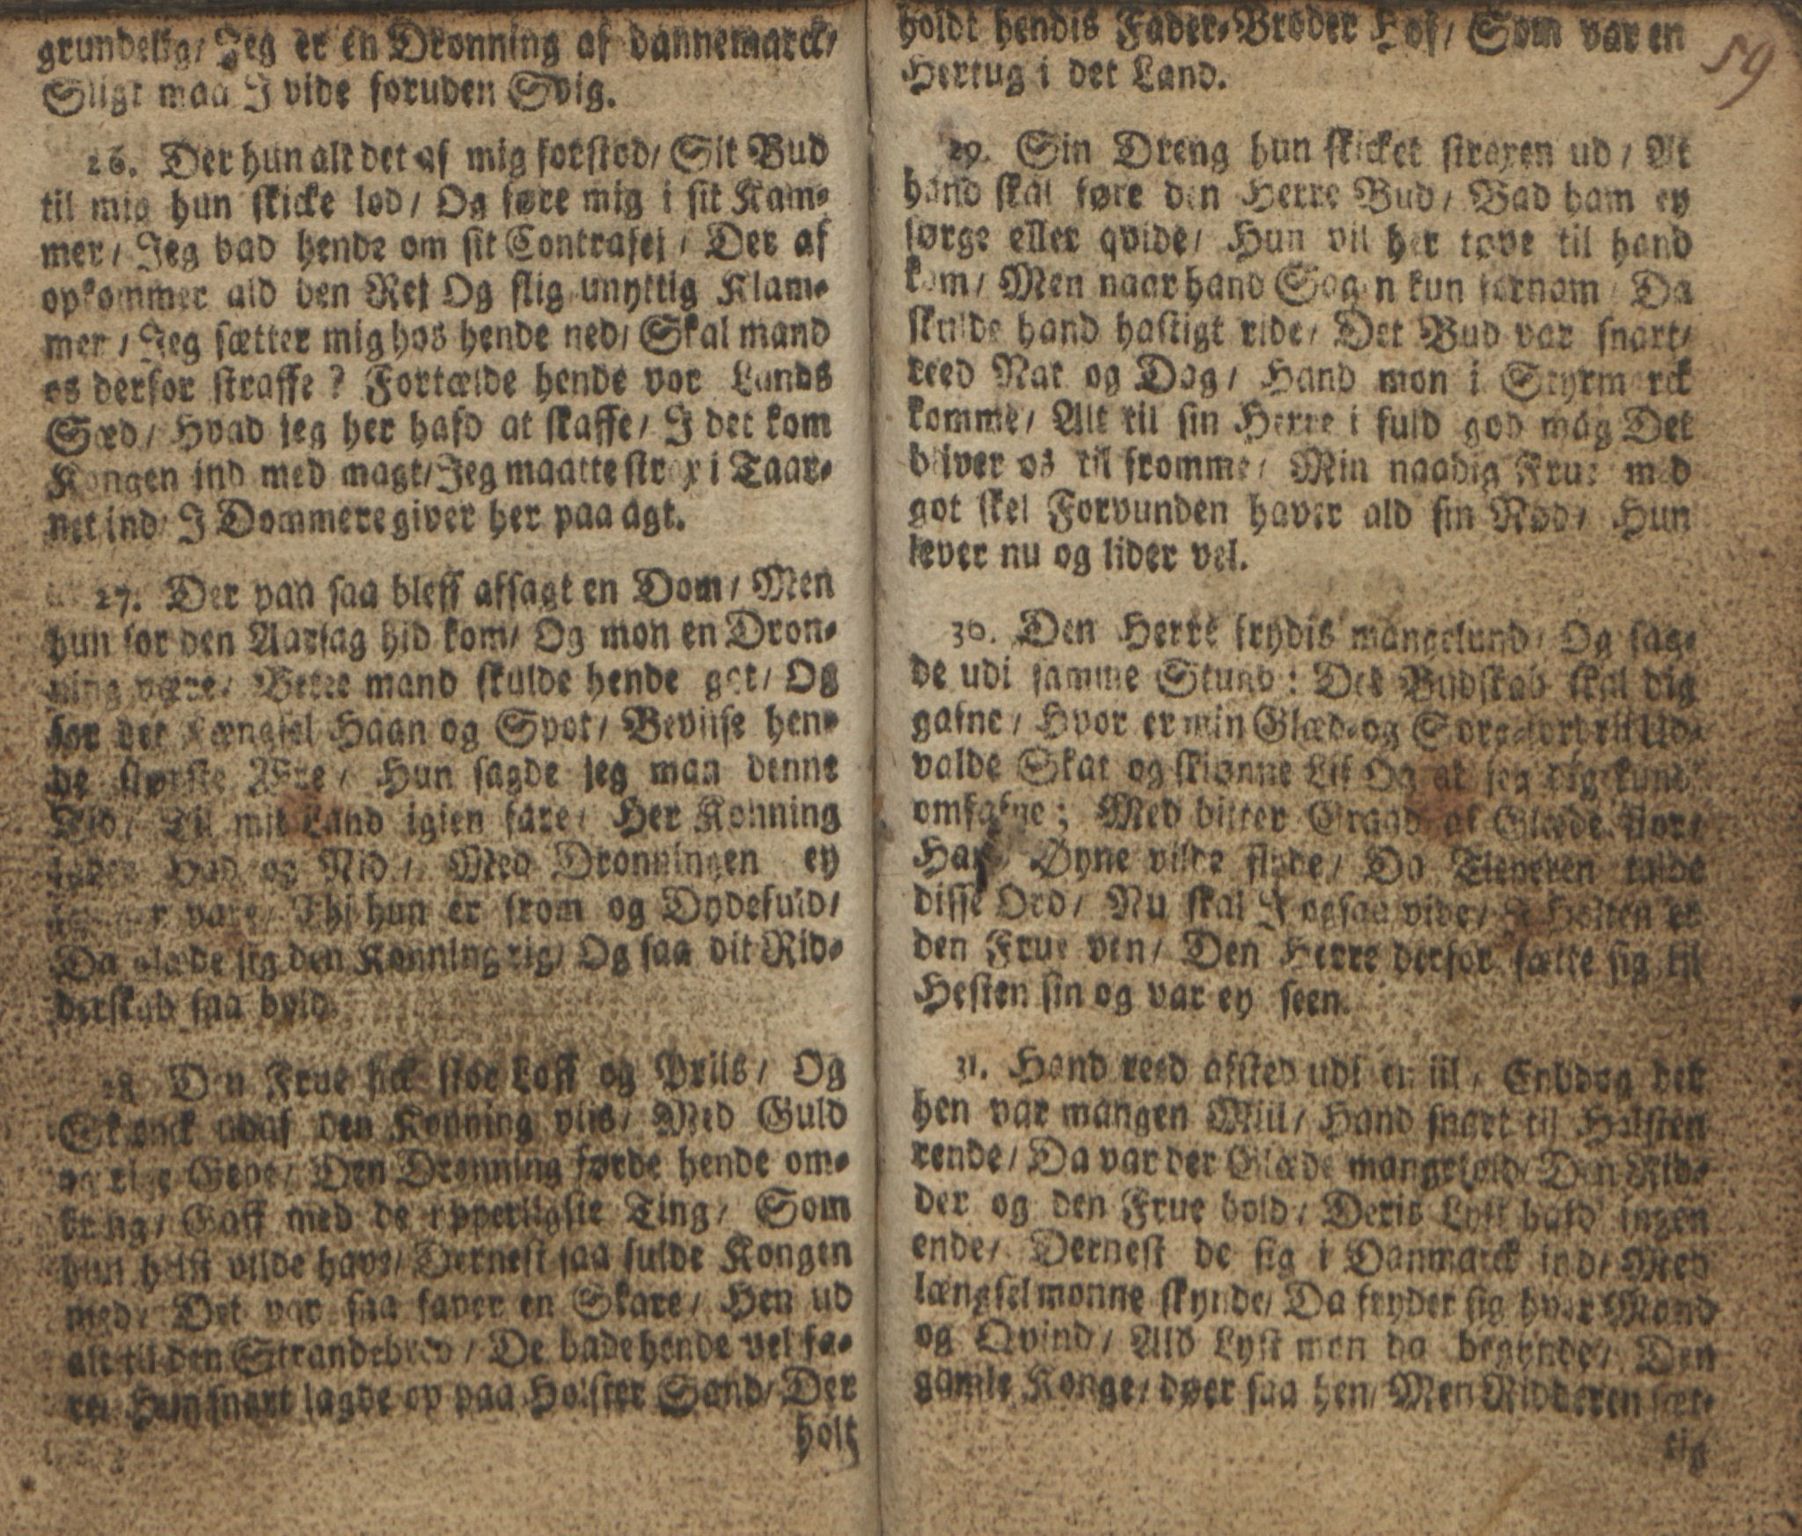 grundelig/ Jeg er en Dronning af dannemarck/
Sligt maa I vide foruden Svig.
26. Der hun alt det af mig forstod/ Sit Bud
til mig hun skicke lod/ Og føre mig i sit Kam-
mer/ Jeg bad hende om sit Contrafej/ Der af
opkommer ald den Rej Og slig unyttig Klam-
mer/ Jeg sætter mig hos hende ned/ Skal mand
os derfor straffe? Fortælde hende vor Lands
Sæd/ Hvad jeg her hafd at skaffe/ I det kom
Kongen ind med magt/ Jeg maatte strax i Taar-
net ind/ I Dommere giver her paa agt.
27. Der paa saa bleff afsagt en Dom/ Men
hun for den Aarsag hid kom/ Og mon en Dron-
ning være/ Betee mand skulde hende got/ Og
for det Fængsel Haan og Spot/ Beviise hen-
de største Ære/ Hun sagde jeg maa denne
Tid/ Til mit Land igien fare/ Her Konning
Had og Nid/ Med Dronningen ey
vare/ Thi hun er from og Dydefuld/
Da glæde sig den Konning rig/ Og saa dit Rid-
derskab saa huld.
28. Den Frue fick stoe Loff og Priis/ Og
Skænck udaf den Konning viis/ Med Guld
og rige Gave/ Den Dronning førde hende om-
kring/ Gaff med de ypperligste Ting/ Som
hun helst vilde have/ Dernest saa fulde Kongen
med/ Det var saa faver en Skare/ Hen ud
alt til den Strandebred/ De bade hende vel fa-
re/ Hun snart lagde op paa Holster Sand/ Der
holt
holdt hendis Fader-Broder Hof/ Som var en
59
Hertug i det Land.
29. Sin Dreng hun skicket straxen ud/ At
hand skal føre den Herre Bud/ Bad ham ey
sørge eller qvide/ Hun vil her tøve til hand
kom/ Men naar hand Sagen kun fornam/ Da
skulde hand hastigt ride/ Det Bud var snart/
reed Nat og Dag/ Hand mon i Styrmarck
komme/ Alt til sin Herre i fuld god mag Det
bliver os til fromme/ Min naadig Frue med
got skel Forvunden haver ald sin Nød/ Hun
lever nu og lider vel.
30. Den Herre frydis mangelund/ Og sag-
de udi samme Stund: Det Budskab skal dig
gafne/ Hvor er min Glæd- og Sorg- Ud-
valde Skat og skiønne Lif Og at jeg dig kund
omfafne; Med bitter Graad af Glæde stor/
Hans Øyne vilde flyde/ Da Tieneren talde
disse Ord/ Nu skal I ogsaa vide/ I Holsten er
den Frue ven/ Den Herre derfor sætte sig til
Hesten sin og var ey seen.
31. Hand reed afsted udi en iil/ Enddog det
hen var mangen Miil/ Hand snart til Holsten
rende/ Da var der Glæde mangefold/ Den Rid-
der og den Frue bold/ Deris Lyst hafd ingen
ende/ Dernest de sig i Danmarck ind/ Med
længsel monne skynde/ Da fryder sig hver Mand
og Qvind/ Ald Lyst mon da begynde/ Den
gamle Konge/ døer saa hen/ Men Ridderen fær-
tig